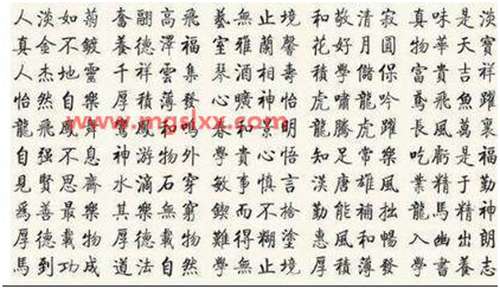 人淡如菊 奮翮高飛 藝無止境 和敬清寂 真味是淡
真金不鍍 養德澤福 室雅蘭馨 花好月圓 物華天寶
人杰地靈 千祥雲集 琴酒相壽 積學儲保 富貴吉祥
怡然自樂 厚積薄發 心曠神怡 虎嘯龍吟 鳶飛魚躍
龍飛鳳舞 鸞鳳和鳴 景明 龍騰虎躍 長風萬裏
自强不息 神游物外 貴心悟 知足常樂 吃虧是福
見賢思齊 水滴石穿 敏事慎言 漢唐雄風 業精于勤
爲善最樂 其樂無窮 鍥而不捨 勤能補拙 龍馬精神
厚德載物 厚德載物 難得糊塗 惠風和暢 入幽出朗
馬到功成 道法自然 學無止境 厚積薄發 學書養志
www.mgslxx.com